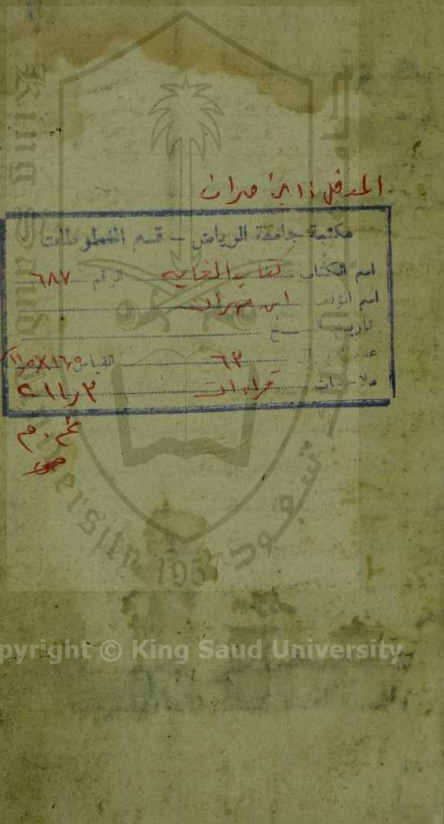 المدخل: ابن مهران
مكتبة جامعة الرياض - قسم المخطوطات
اسم الكتاب كتاب الغايه الرقم ٦٨٧
اسم المؤلف ابن مهران
تاريخ النسخ
٦٢ القياس
ملاحظات قراءات ٢١١٫٢
King Saud University 1957
Copyright © King Saud University